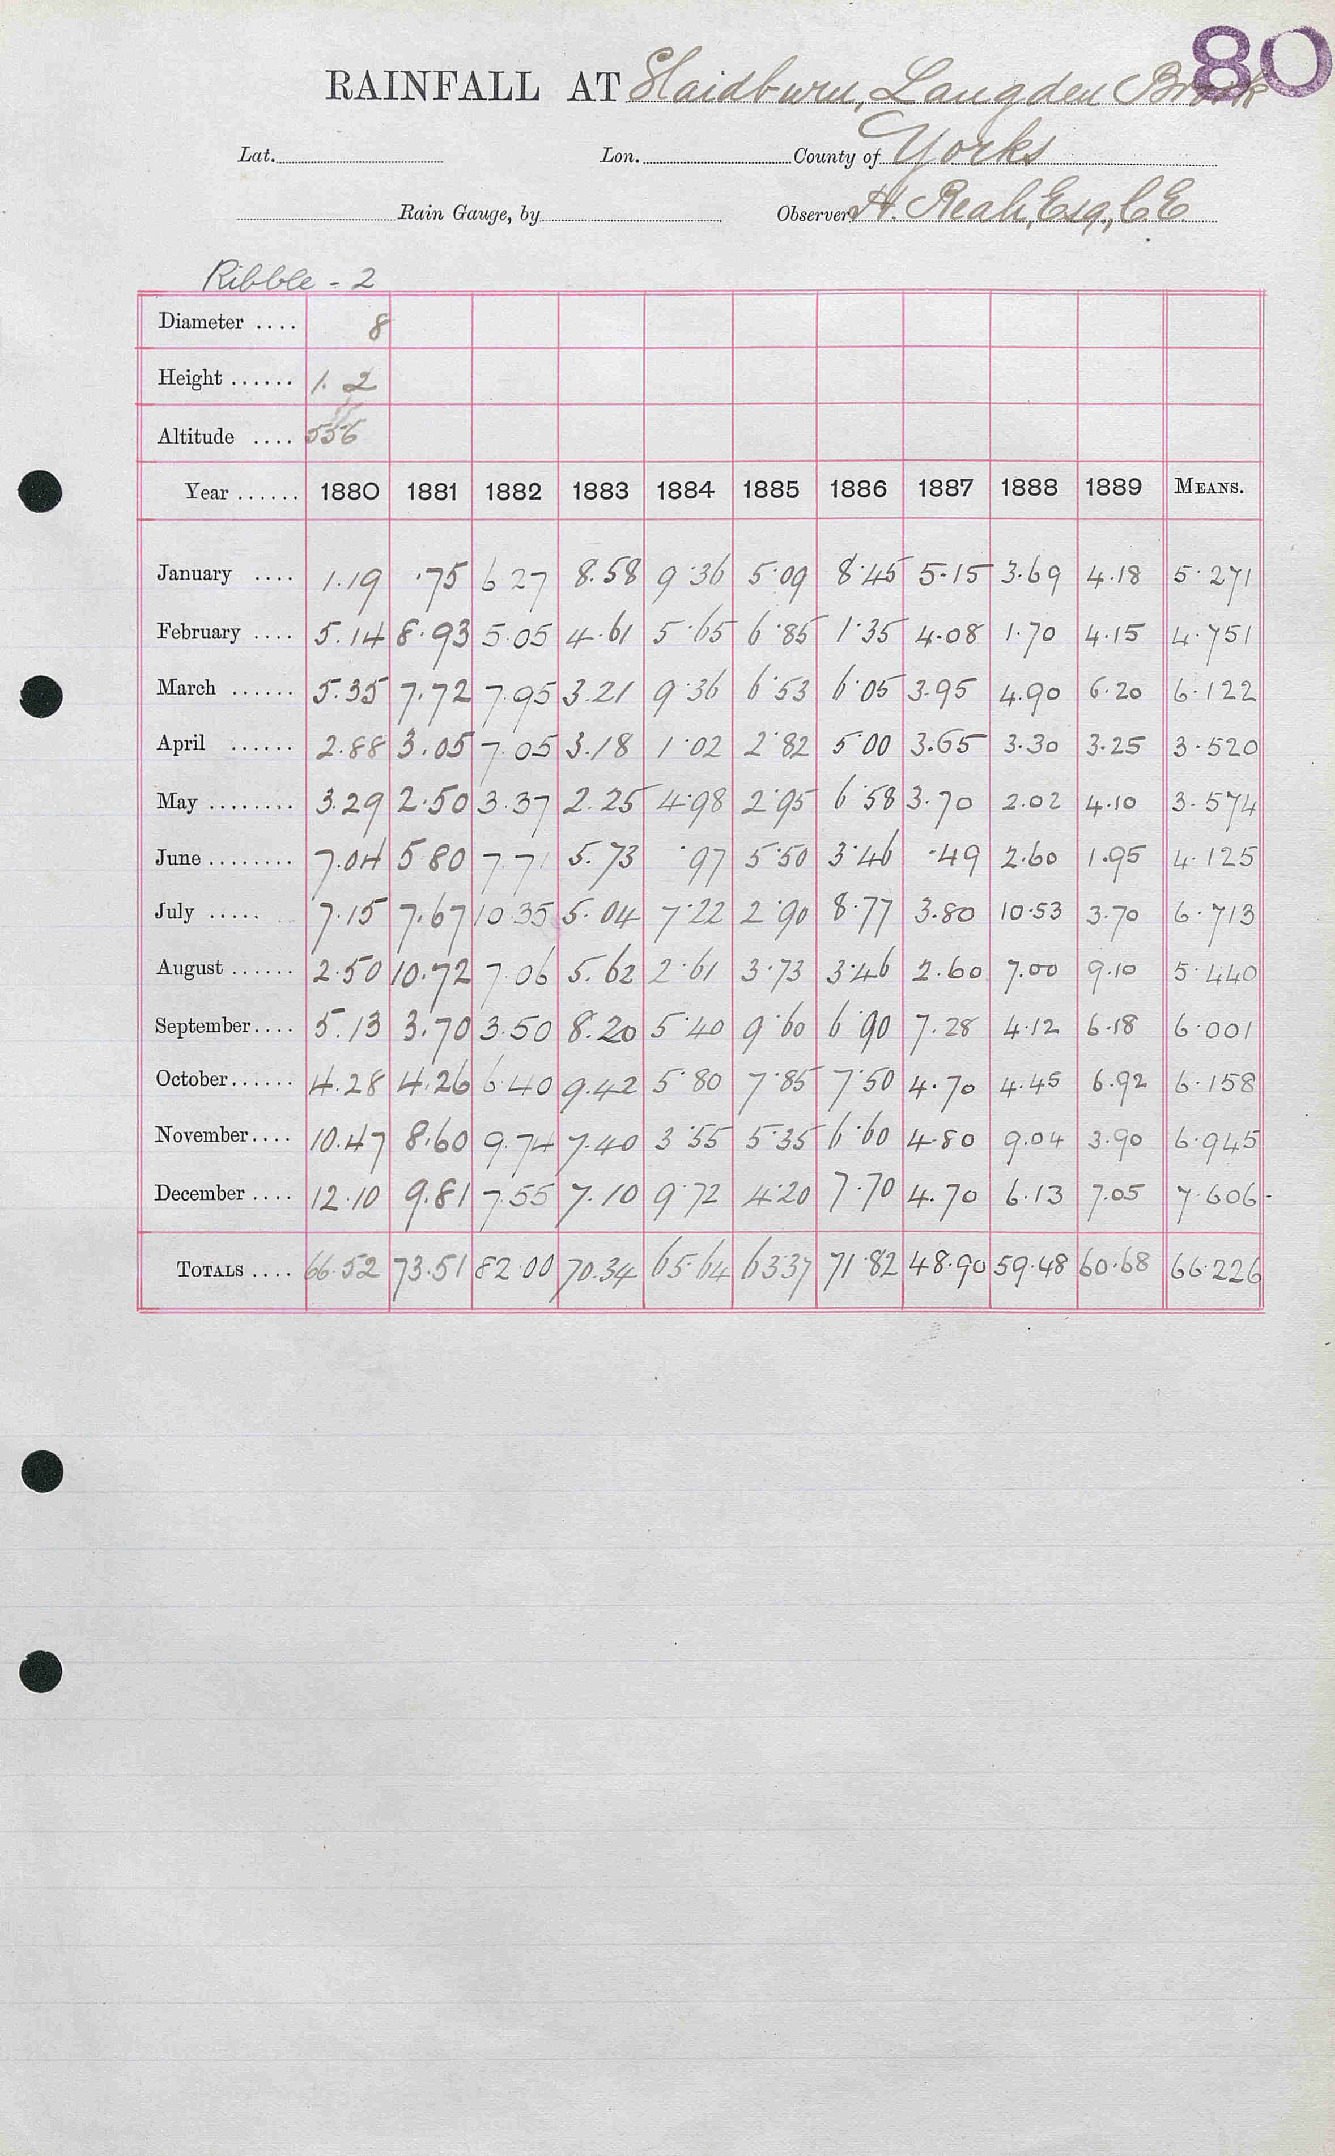 80
RAINFALL AT Slaidburn, Langden Brook
Lat. Lon. County of Yorks
Rain Gauge, by Observer H. Reah, Esq., C E
Ribble - 2
Diameter .... 8
Height ...... 1. 2
Altitude .... 556
Year ...... 1880 1881 1882 1883 1884 1885 1886 1887 1888 1889 MEANS.
January .... 1.19 .75 6 27 8.58 9.36 5.09 8.45 5.15 3.69 4.18 5.271
February .... 5.14 8.93 5.05 4.61 5.65 6.85 1.35 4.08 1.70 4.15 4.751
March ...... 5.35 7.72 7.95 3.21 9.36 6.53 6.05 3.95 4.90 6.20 6.122
April ...... 2.88 3.05 7.05 3.18 1.02 2.82 5.00 3.65 3.30 3.25 3.520
May ........ 3.29 2.50 3.37 2.25 4.98 2.95 6.58 3.70 2.02 4.10 3.574
June ........ 7.04 5 80 7 71 5.73 .97 5.50 3.46 .49 2.60 1.95 4.125
July ..... 7.15 7.67 10 35 5.04 7.22 2.90 8.77 3.80 10.53 3.70 6.713
August ...... 2.50 10.72 7.06 5.62 2.61 3.73 3.46 2.60 7.00 9.10 5.440
September .... 5.13 3.70 3.50 8.20 5.40 9.60 6.90 7.28 4.12 6.18 6.001
October ...... 4.28 4.26 6.40 9.42 5.80 7.85 7.50 4.70 4.45 6.92 6.158
November .... 10.47 8.60 9.74 7.40 3.55 5.35 6.60 4.80 9.04 3.90 6.945
December .... 12.10 9.81 7.55 7.10 9.72 4.20 7.70 4.70 6.13 7.05 7.606
TOTALS .... 66.52 73.51 82.00 70.34 65.64 63.37 71.82 48.90 59.48 60.68 66.226